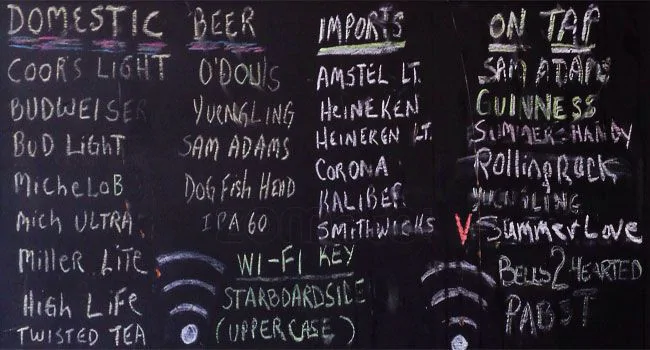 DOMESTIC BEER
COOR'S LIGHT
BUDWEISER
BUD LIGHT
MICHELOB
MICH ULTRA
MILLER LITE
HIGH LIFE
TWISTED TEA
O'DOULS
YUENGLING
SAM ADAMS
DOG FISH HEAD
IPA 60
IMPORTS
AMSTEL LT.
HEINEKEN
HEINEKEN LT.
CORONA
KALIBER
SMITHWICKS
WI-FI KEY
STARBOARDSIDE
(UPPERCASE)
ON TAP
SAM ADAMS
GUINNESS
SUMMER SHANDY
Rolling Rock
YUENGLING
V SummerLove
BELLS 2 HEARTED
PABST